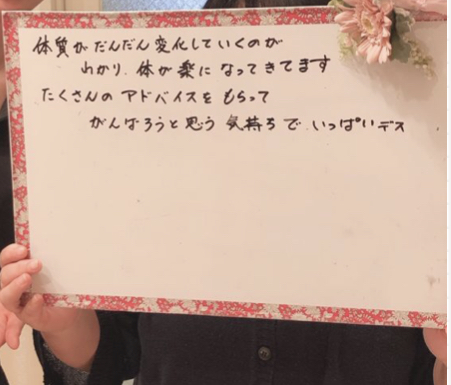 体質がだんだん変化していくのが
わかり、体が楽になってきてます
たくさんのアドバイスをもらって
がんばろうと思う気持ちで、いっぱいデス